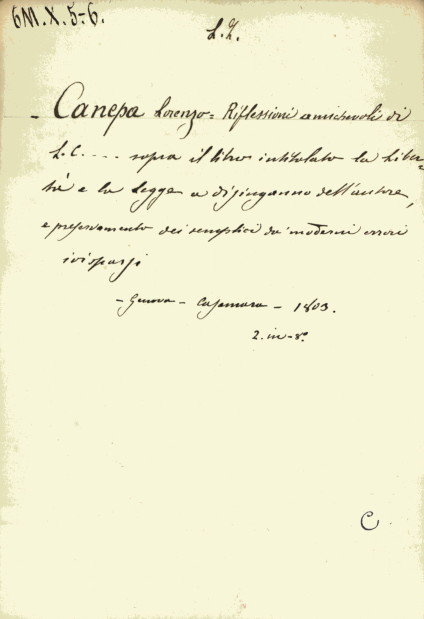 6M.X.5-6.
L.Z.
- Canepa Lorenzo = Riflessioni amichevoli di
L.C. .... sopra il libro intitolato la Liber-
tà e la Legge a disinganno dell'autore,
e preservamento dei semplici da' moderni errori
ivi sparsi
- Genova - Casamara - 1803.
2. in-8°.
C